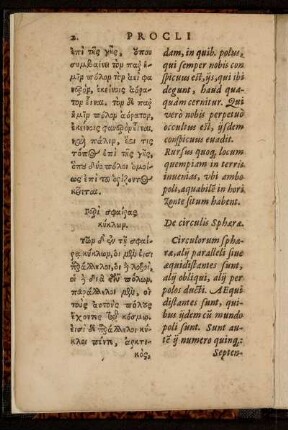 2. PROCLI
ἐπὶ τῆς γῆς, ὅπου
συμβαίνει τὸν παρ᾽ ἡ-
μῖν πόλον τὸν ἀεὶ φα-
νερὸν, ἐκείνοις ἀόρα-
τον εἶναι. τὸν δὲ παρ᾽
ἡμῖν πόλον ἀόρατον,
ἐκείνοις φανερὸν εἶναι.
καὶ πάλιν, ἔστι τις
τόπος ἐπὶ τῆς γῆς,
ὅπου οἱ δύο πόλοι ὁμοί-
ως ἐπὶ τοῦ ὁρίζοντος
κεῖνται.
Περὶ σφαίρας
κύκλων.
Τῶν δὲ ἐν τῇ σφαί-
ρᾳ κύκλων, οἱ μὲν εἰσι
παράλληλοι, οἱ δὲ λοξοὶ,
οἱ δὲ διὰ τῶν πόλων.
παράλληλοι μὲν, οἱ
τοὺς αὐτοὺς πόλους
ἔχοντες τῷ κόσμῳ.
εἰσὶ δὲ παράλληλοι κύ-
κλοι πέντε, ἀρκτι-
κὸς,
dam, in quib. polus,
qui semper nobis con
spicuus est, ijs, qui ibi
degunt, haud qua-
quàm cernitur. Qui
verò nobis perpetuò
occultus est, ijsdem
conspicuus euadit.
Rursus quoq. locum
quempiam in terris
inuenias, vbi ambo
poli, æquabilẽ in hori
zonte situm habent.
De circulis Sphæræ.
Circulorum sphæ-
ræ, alij paralleli siue
æquidistantes sunt,
alij obliqui, alij per
polos ducti. Æqui
distantes sunt, qui-
bus ijdem cũ mundo
poli sunt. Sunt au-
tẽ ij numero quinq.:
Septen-